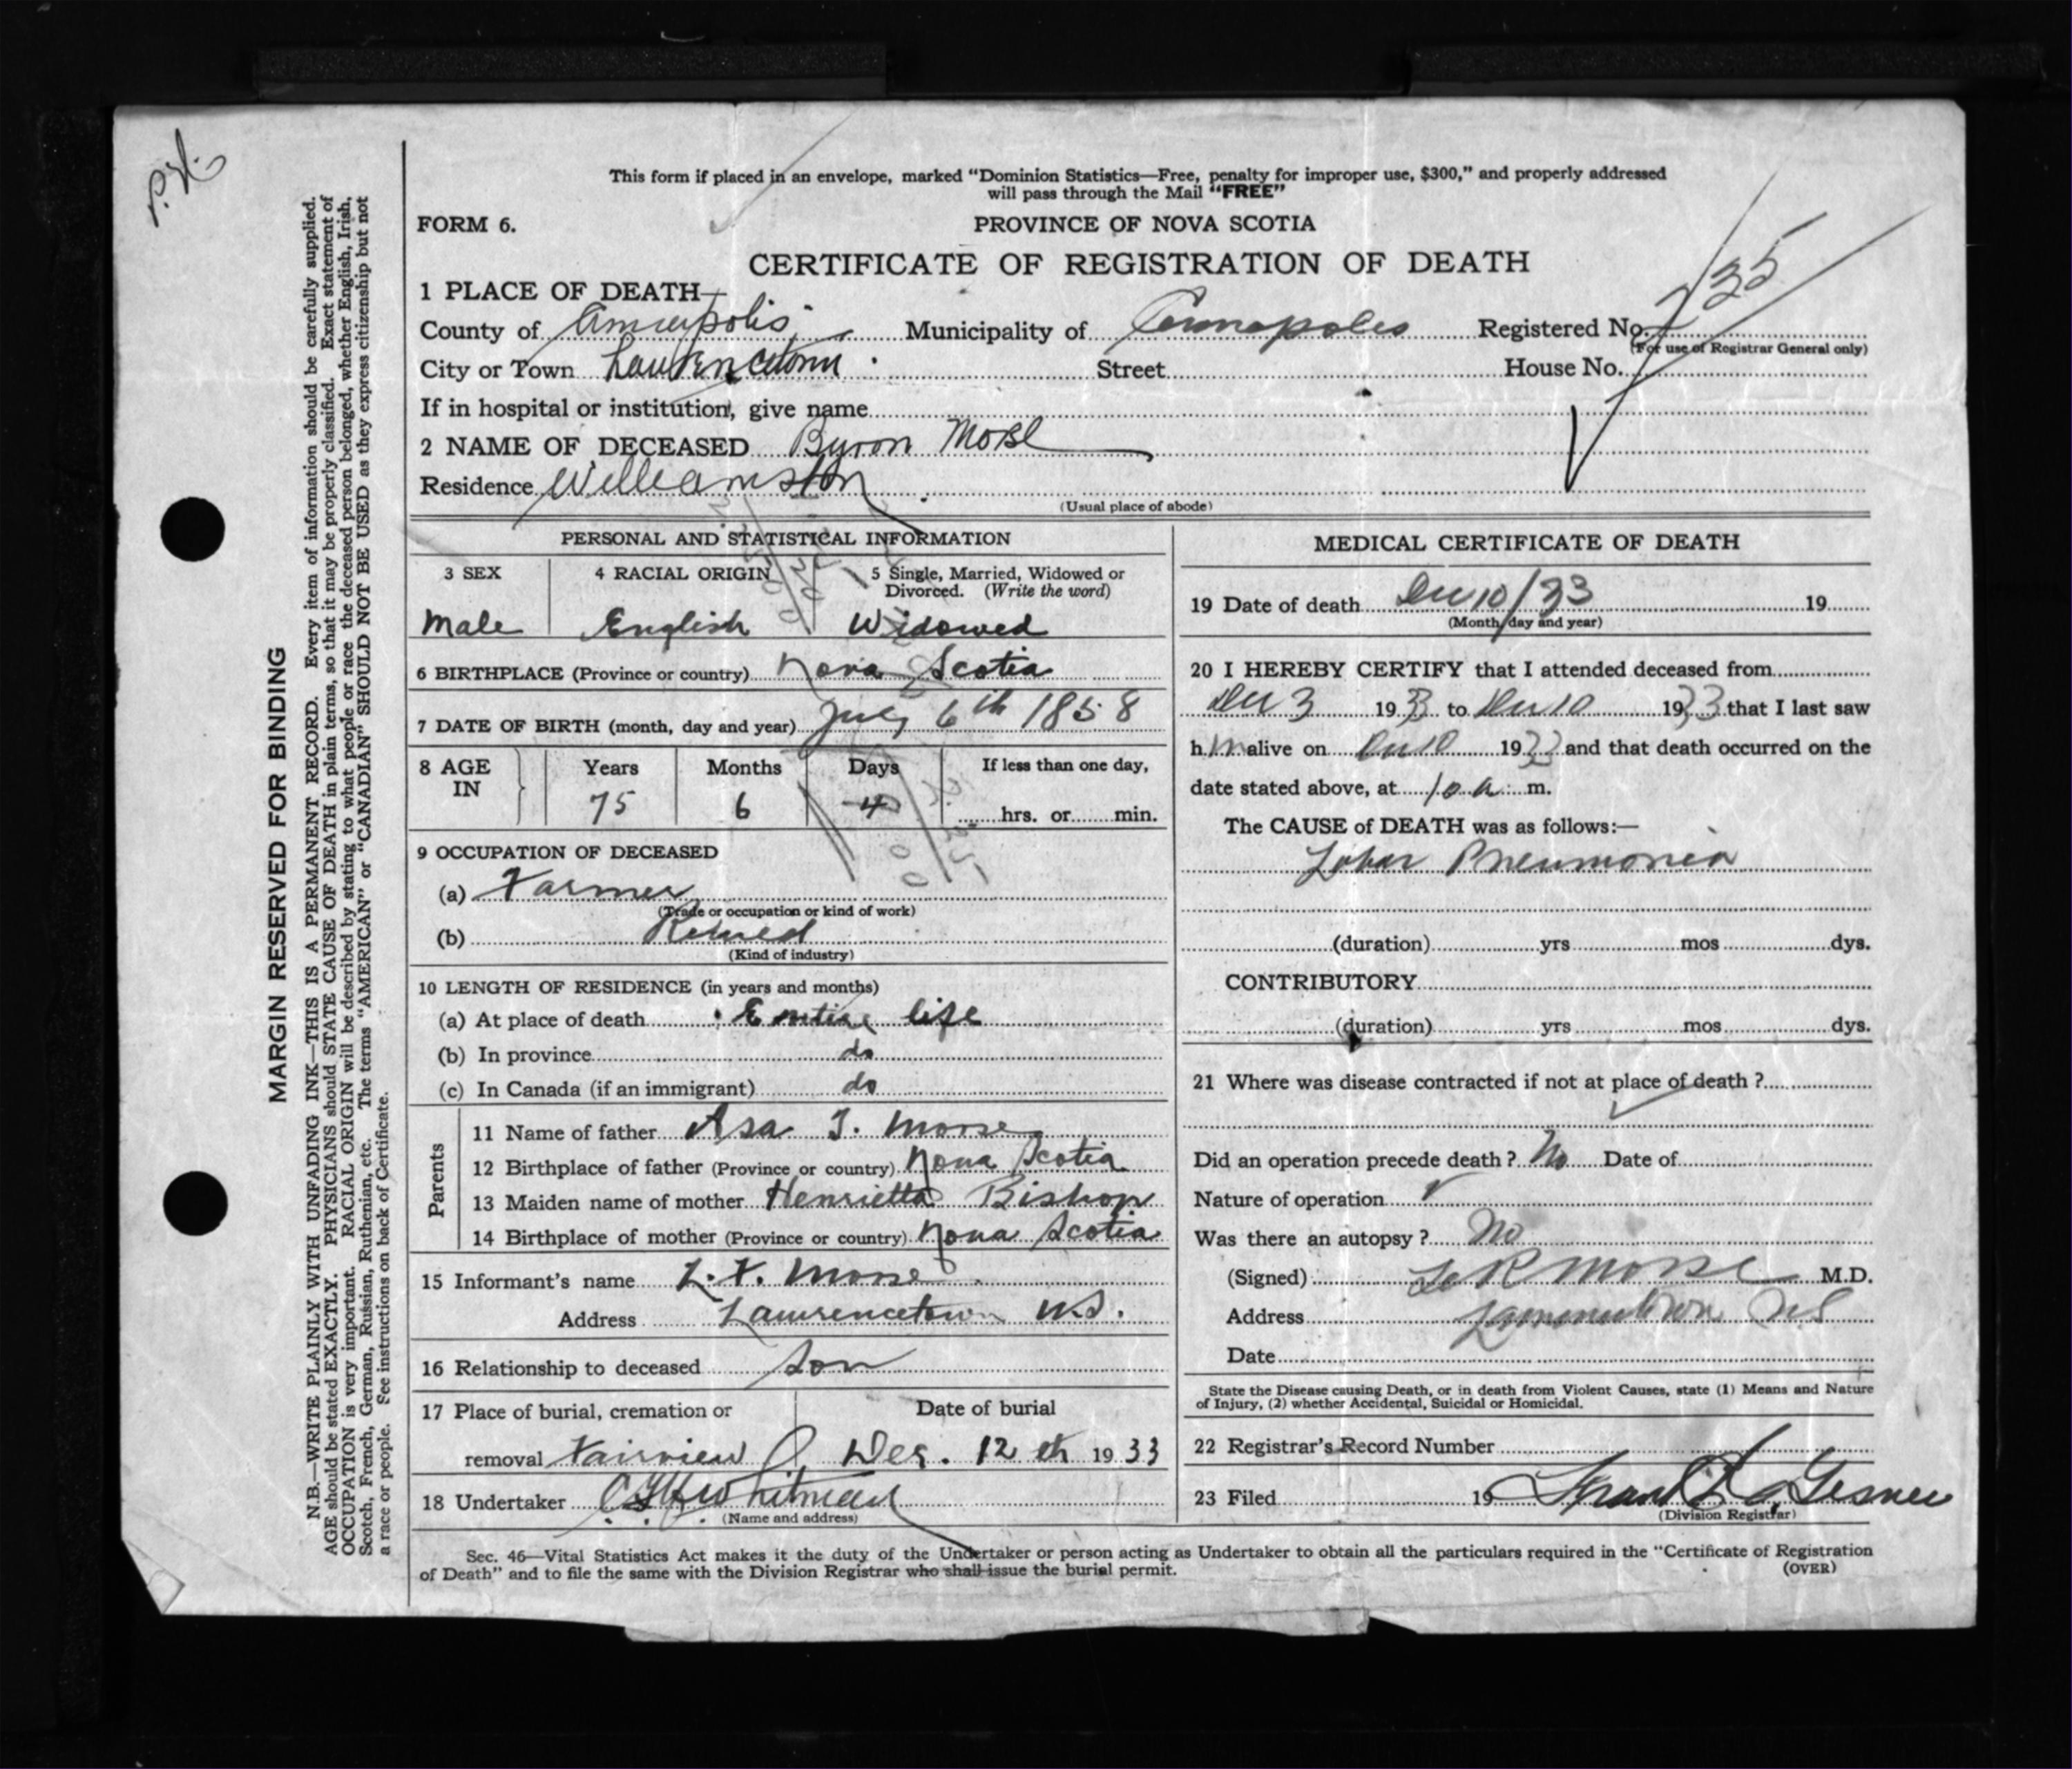 P.H.
This form if placed in an envelope, marked “Dominion Statistics—Free, penalty for improper use, $300,” and properly addressed
will pass through the Mail “FREE”
FORM 6. PROVINCE OF NOVA SCOTIA
CERTIFICATE OF REGISTRATION OF DEATH
1 PLACE OF DEATH—
County of Annapolis Municipality of Annapolis Registered No. 735
(For use of Registrar General only)
City or Town Lawrencetown Street House No.
If in hospital or institution, give name
2 NAME OF DECEASED Byron Morse
Residence Williamston
(Usual place of abode)
PERSONAL AND STATISTICAL INFORMATION
3 SEX 4 RACIAL ORIGIN 5 Single, Married, Widowed or
Divorced. (Write the word)
Male English Widowed
6 BIRTHPLACE (Province or country) Nova Scotia
7 DATE OF BIRTH (month, day and year) July 6th 1858
8 AGE IN Years Months Days If less than one day,
75 6 4 hrs. or min.
9 OCCUPATION OF DECEASED
(a) Farmer
(Trade or occupation or kind of work)
(b) Retired
(Kind of industry)
10 LENGTH OF RESIDENCE (in years and months)
(a) At place of death Entire life
(b) In province do
(c) In Canada (if an immigrant) do
Parents
11 Name of father Asa T. Morse
12 Birthplace of father (Province or country) Nova Scotia
13 Maiden name of mother Henrietta Bishop
14 Birthplace of mother (Province or country) Nova Scotia
15 Informant's name L. F. Morse
Address Lawrencetown N.S.
16 Relationship to deceased Son
17 Place of burial, cremation or Date of burial
removal Fairview Dec. 12th 1933
18 Undertaker Whitman
(Name and address)
MEDICAL CERTIFICATE OF DEATH
19 Date of death Dec 10/33 19
(Month, day and year)
20 I HEREBY CERTIFY that I attended deceased from
Dec 3 1933 to Dec 10 1933 that I last saw
h im alive on Dec 10 1933 and that death occurred on the
date stated above, at 10 a. m.
The CAUSE of DEATH was as follows:—
Lobar Pneumonia
(duration) yrs mos dys.
CONTRIBUTORY
(duration) yrs mos dys.
21 Where was disease contracted if not at place of death ?
Did an operation precede death ? No Date of
Nature of operation
Was there an autopsy ? No
(Signed) L R Morse M.D.
Address Lawrencetown N S
Date
State the Disease causing Death, or in death from Violent Causes, state (1) Means and Nature
of Injury, (2) whether Accidental, Suicidal or Homicidal.
22 Registrar's Record Number
23 Filed 19 Frank Gesner
(Division Registrar)
Sec. 46—Vital Statistics Act makes it the duty of the Undertaker or person acting as Undertaker to obtain all the particulars required in the “Certificate of Registration
of Death” and to file the same with the Division Registrar who shall issue the burial permit. (OVER)
MARGIN RESERVED FOR BINDING
N.B.—WRITE PLAINLY WITH UNFADING INK—THIS IS A PERMANENT RECORD. Every item of information should be carefully supplied.
AGE should be stated EXACTLY. PHYSICIANS should STATE CAUSE OF DEATH in plain terms, so that it may be properly classified. Exact statement of
OCCUPATION is very important. RACIAL ORIGIN will be described by stating to what people or race the deceased person belonged, whether English, Irish,
Scotch, French, German, Russian, Ruthenian, etc. The terms “AMERICAN” or “CANADIAN” SHOULD NOT BE USED as they express citizenship but not
a race or people. See instructions on back of Certificate.